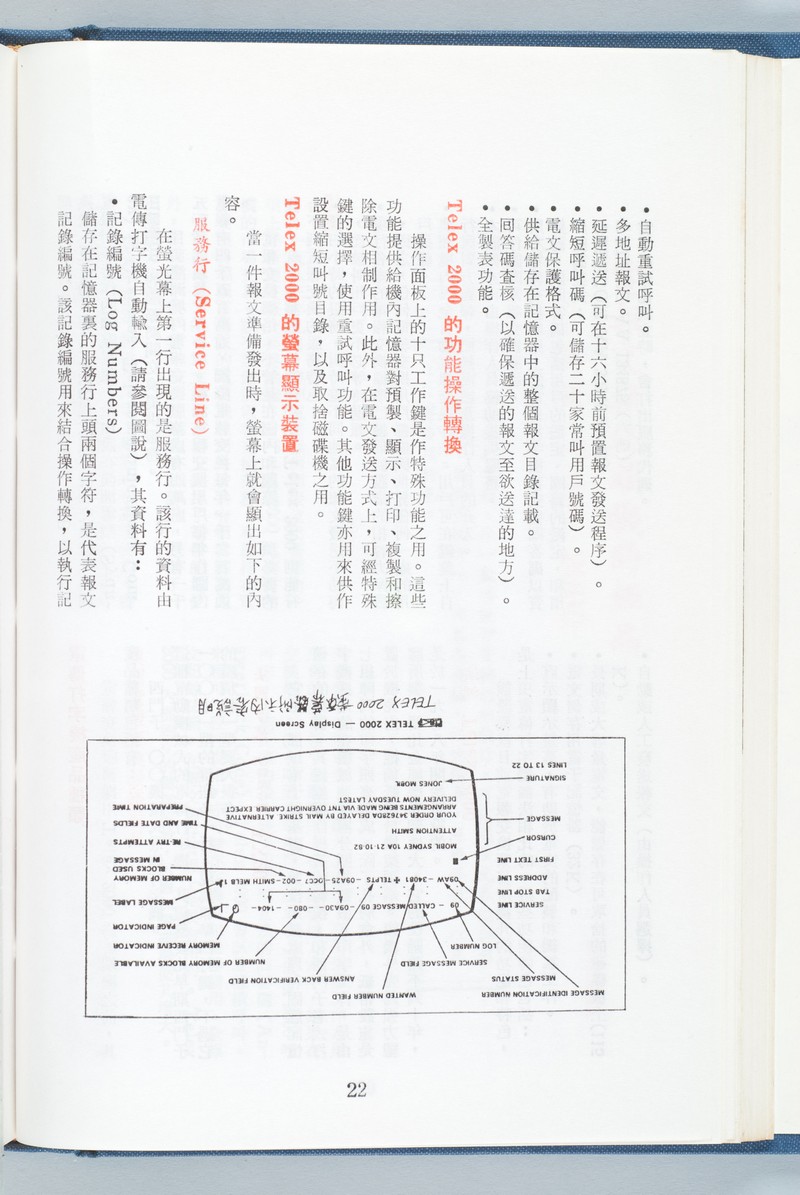 • 自動重試呼叫。
• 多地址報文。
• 延遲遞送（可在十六小時前預置報文發送程序）。
• 縮短呼叫碼（可儲存二十家常叫用戶號碼）。
• 電文保護格式。
• 供給儲存在記憶器中的整個報文目錄記載。
• 回答碼查核（以確保遞送的報文至欲送達的地方）。
• 全製表功能。
Telex 2000 的功能操作轉換
操作面板上的十只工作鍵是作特殊功能之用。這些
功能提供給機內記憶器對預製、顯示、打印、複製和擦
除電文相制作用。此外，在電文發送方式上，可經特殊
鍵的選擇，使用重試呼叫功能。其他功能鍵亦用來供作
設置縮短叫號目錄，以及取捨磁碟機之用。
Telex 2000 的螢幕顯示裝置
當一件報文準備發出時，螢幕上就會顯出如下的內
容。
服務行（Service Line）
在螢光幕上第一行出現的是服務行。該行的資料由
電傳打字機自動輸入（請參閱圖說），其資料有：
• 記錄編號（Log Numbers）
儲存在記憶器裏的服務行上頭兩個字符，是代表報文
記錄編號。該記錄編號用來結合操作轉換，以執行記
MESSAGE IDENTIFICATION NUMBER
MESSAGE STATUS
SERVICE MESSAGE FIELD
LOG NUMBER
WANTED NUMBER FIELD
ANSWER BACK VERIFICATION FIELD
NUMBER OF MEMORY BLOCKS AVAILABLE
MEMORY RECEIVE INDICATOR
PAGE INDICATOR
MESSAGE LABEL
NUMBER OF MEMORY
BLOCKS USED
IN MESSAGE
RE-TRY ATTEMPTS
TIME AND DATE FIELDS
PREPARATION TIME
SERVICE LINE
TAB STOP LINE
ADDRESS LINE
FIRST TEXT LINE
CURSOR
MESSAGE
SIGNATURE
LINES 13 TO 22
09 – CALLED MESSAGE 09 – 09A30 – 080 – 1404 –
09AW – 34081 + TELPTS – 09A25 – OCC7 – 002 – SMITH MELB 1
MOBIL SYDNEY 10A 21.10.82
ATTENTION SMITH
YOUR ORDER 34762BDA DELAYED BY MAIL STRIKE. ALTERNATIVE
ARRANGEMENTS BEING MADE VIA TNT OVERNIGHT CARRIER EXPECT
DELIVERY NOW TUESDAY LATEST
JONES MOBK
TELEX 2000 — Display Screen
TELEX 2000
22